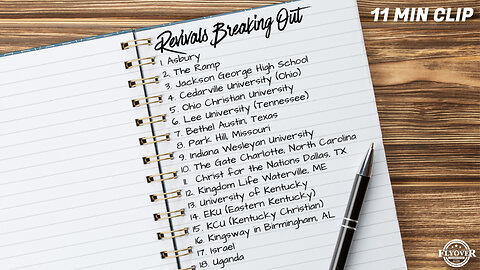 11 MIN CLIP
Revivals Breaking Out
1. Asbury
2. The Ramp
3. Jackson George High School
4. Cedarville University (Ohio)
5. Ohio Christian University
6. Lee University (Tennessee)
7. Bethel Austin, Texas
8. Park Hill, Missouri
9. Indiana Wesleyan University
10. The Gate Charlotte, North Carolina
11. Christ for the Nations Dallas, TX
12. Kingdom Life Waterville, ME
13. University of Kentucky
14. EKU (Eastern Kentucky)
15. KCU (Kentucky Christian)
16. Kingsway in Birmingham, AL
17. Israel
18. Uganda
FLYOVER